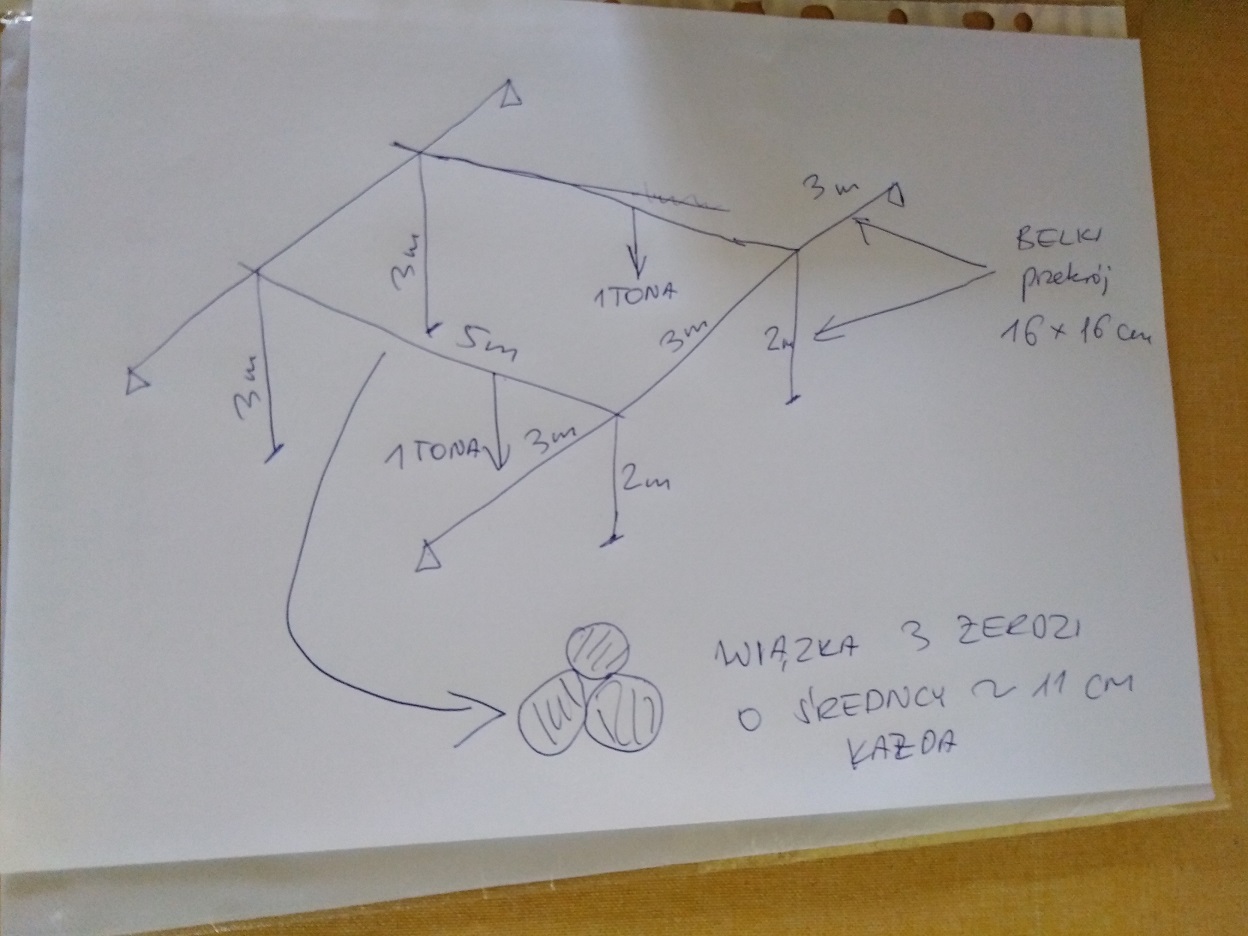 3m
BELKI
przekrój
16 x 16 cm
3m
1 TONA
5m
3m
2m
3m
1 TONA
3m
2m
WIĄZKA 3 ŻERDZI
O ŚREDNCY ~ 11 CM
KAŻDA